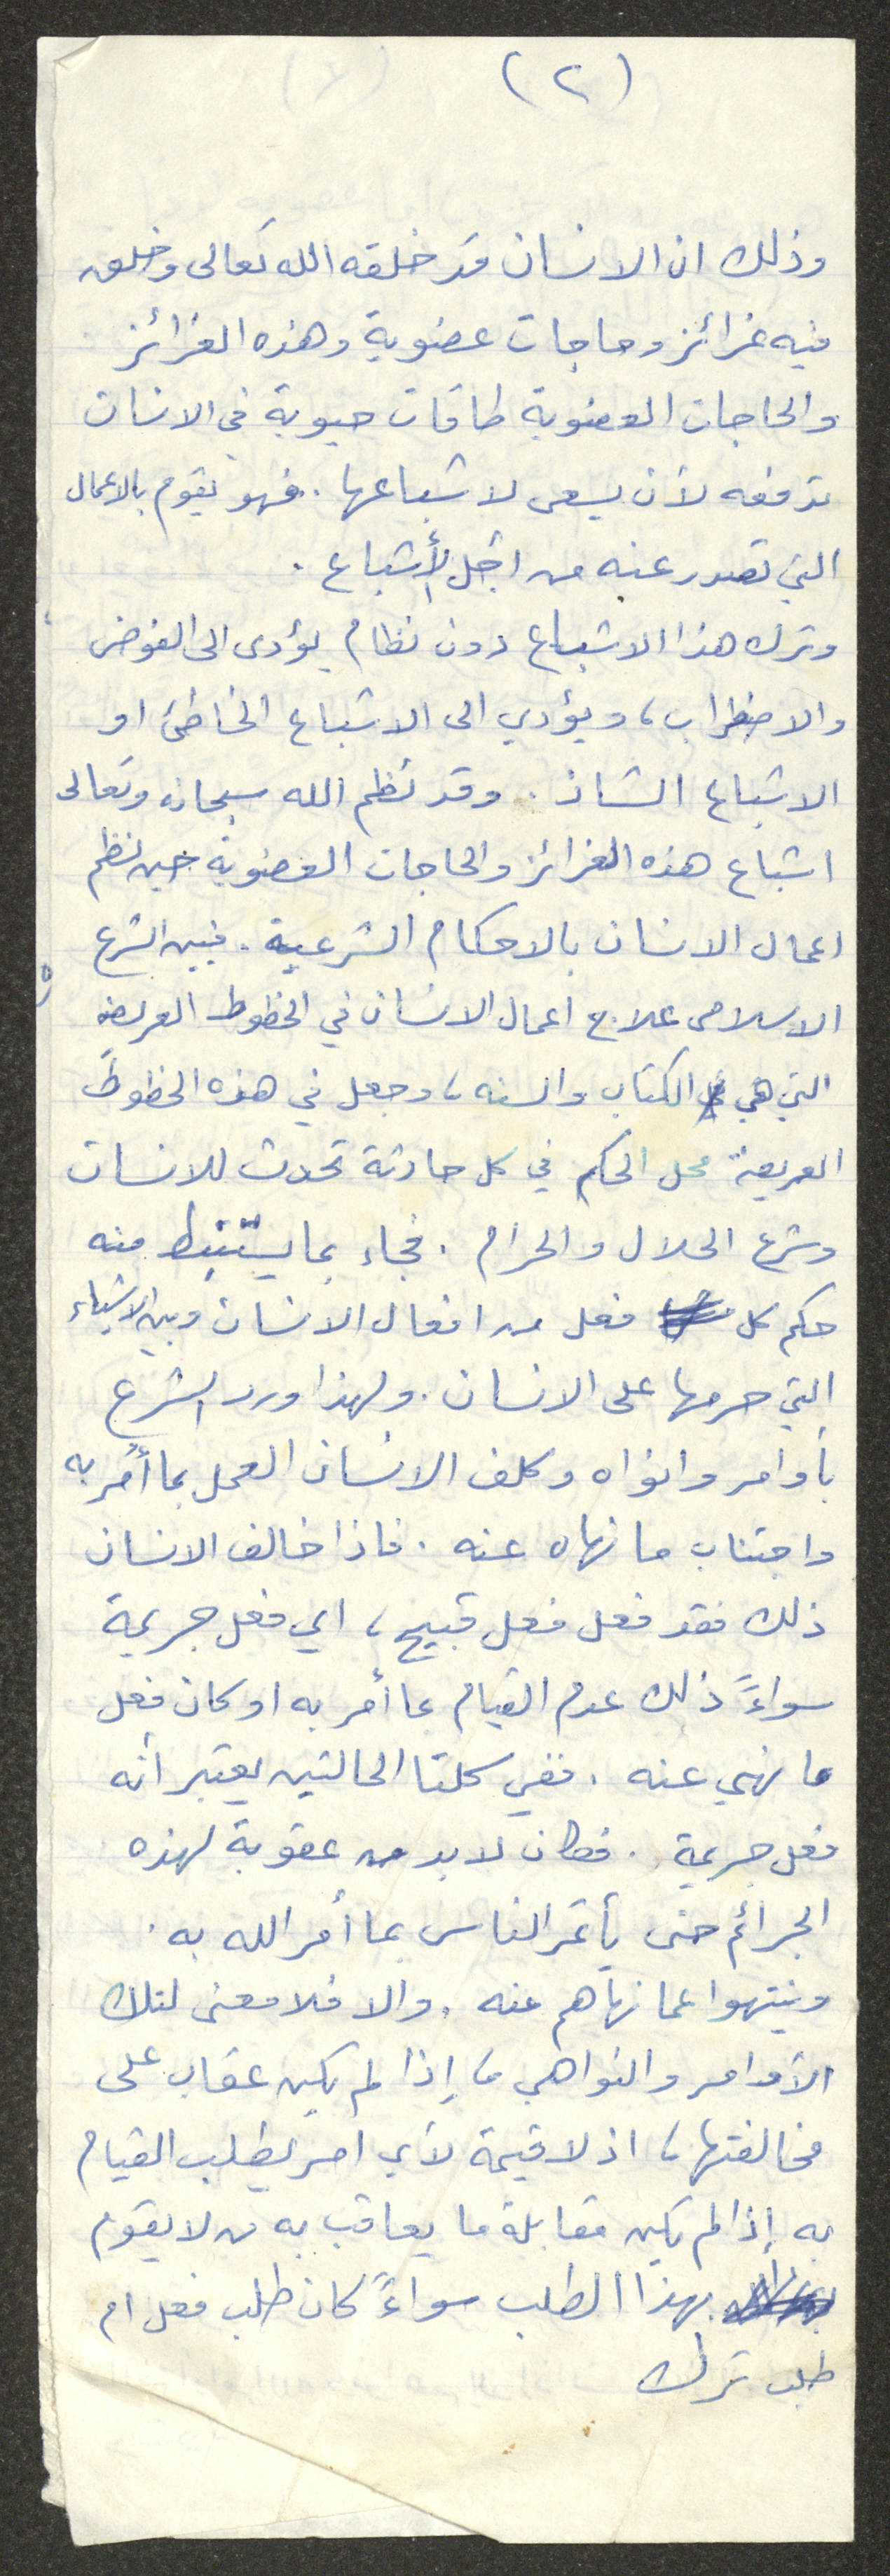 (٢)
وذلك ان الانسان قد خلقه الله تعالى وخلق
فيه غرائز وحاجات عضوية وهذه الغرائز
والحاجات العضوية طاقات حيوية في الانسان
تدفعه لأن يسعى لاشباعها. فهو يقوم بالاعمال
التي تصدر عنه من اجل الأشباع .
وترك هذا الاشباع دون نظام يؤدى الى الفوضى
والاضطراب، ويؤدي الى الاشباع الخاطئ او
الاشباع الشاذ . وقد نظم الله سبحانه وتعالى
اشباع هذه الغرائز والحاجات العضوية حين نظم
اعمال الانسان بالاحكام الشرعية. فبين الشرع
الاسلامى علاج اعمال الانسان في الخطوط العريضه
التي هي الكتاب والسنه، وجعل في هذه الخطوط
العريضة محل الحكم في كل حادثة تحدث للانسان
وشرع الحلال والحرام . فجاء بما يستنبط منه
حكم كل فعل من افعال الانسان وبين الاشياء
التي حرمها على الانسان. ولهذا ورد الشرع
بأوامر وانواه وكلف الانسان العمل بما أمر به
واجتناب ما نهاه عنه . فاذا خالف الانسان
ذلك فقد فعل فعل قبيح، اي فعل جريمة
سواءً ذلك عدم القيام بما أمر به او كان فعل
ما نهي عنه . ففي كلتا الحالتين يعتبر أنه
فعل جريمة . فكان لا بد من عقوبة لهذه
الجرائم حتى يأتمر الناس بما أمر الله به .
وينتهوا عما نهاهم عنه . والا فلا معنى لتلك
الأوامر والنواهي، إذا لم يكن عقاب على
مخالفتها، اذ لا قيمة لأي امر يطلب القيام
به إذا لم يكن مقابلة ما يعاقب به من لا يقوم
بهذا الطلب سواءً كان طلب فعل ام
طلب ترك